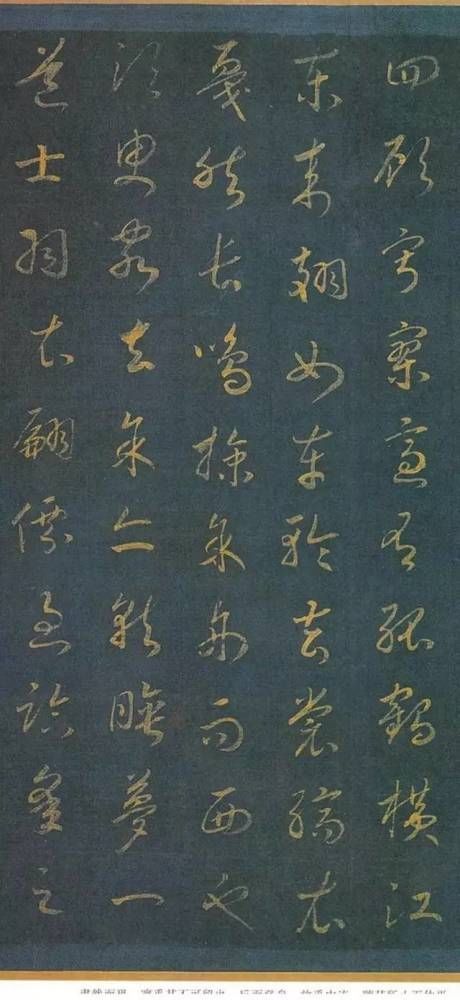 四顧寂寥適有孤鶴橫江
東來翅如車輪玄裳縞衣
戛然長鳴掠予舟而西也
須臾客去予亦就睡夢一
道士羽衣翩僊過臨皋之